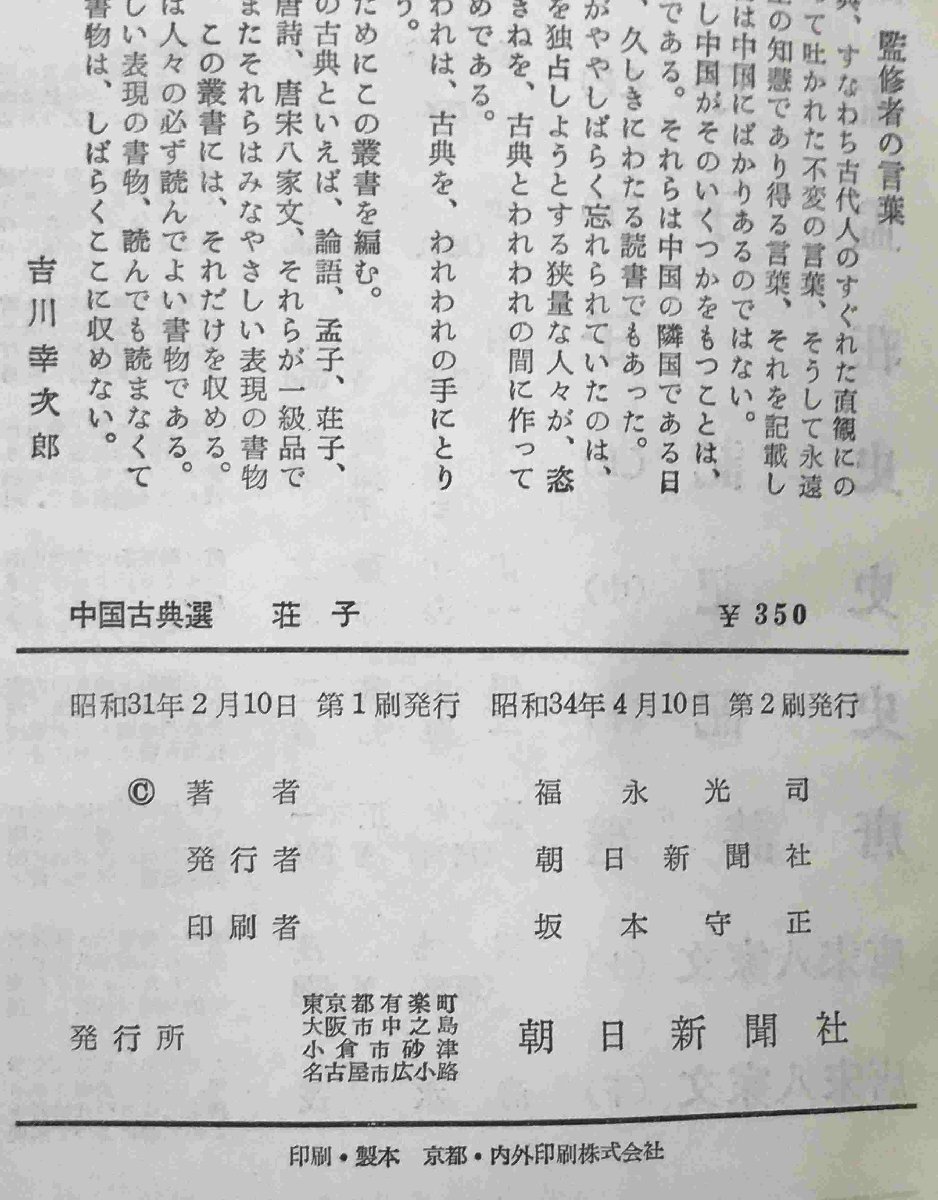 監修者の言葉
典、すなわち古代人のすぐれた直観にの
って吐かれた不変の言葉、そうして永遠
の知慧であり得る言葉、それを記載し
は中国にばかりあるのではない。
し中国がそのいくつかをもつことは、
である。それらは中国の隣国である日
、久しきにわたる読書でもあった。
がややしばらく忘れられていたのは、
を独占しようとする狭量な人々が、恣
きねを、古典とわれわれの間に作って
めである。
われは、古典を、われわれの手にとり
う。
ためにこの叢書を編む。
の古典といえば、論語、孟子、荘子、
唐詩、唐宋八家文、それらが一級品で
またそれらはみなやさしい表現の書物
この叢書には、それだけを収める。
は人々の必ず読んでよい書物である。
しい表現の書物、読んでも読まなくて
書物は、しばらくここに収めない。
吉川幸次郎
中国古典選 荘子 ¥350
昭和31年2月10日 第1刷発行 昭和34年4月10日 第2刷発行
© 著者 福永光司
発行者 朝日新聞社
印刷者 坂本守正
発行所
東京都有楽町
大阪市中之島
小倉市砂津
名古屋市広小路
朝日新聞社
印刷・製本 京都・内外印刷株式会社